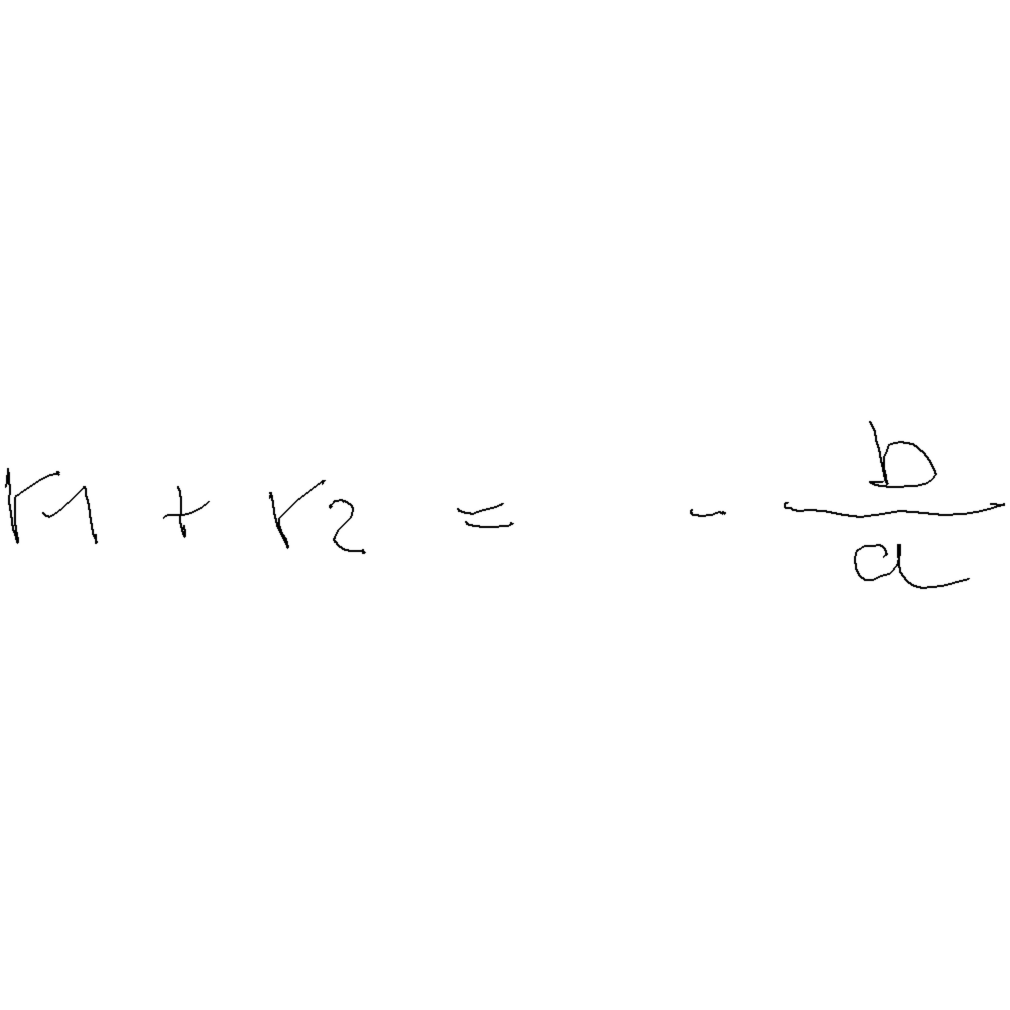 r1 + r2 = - b/a